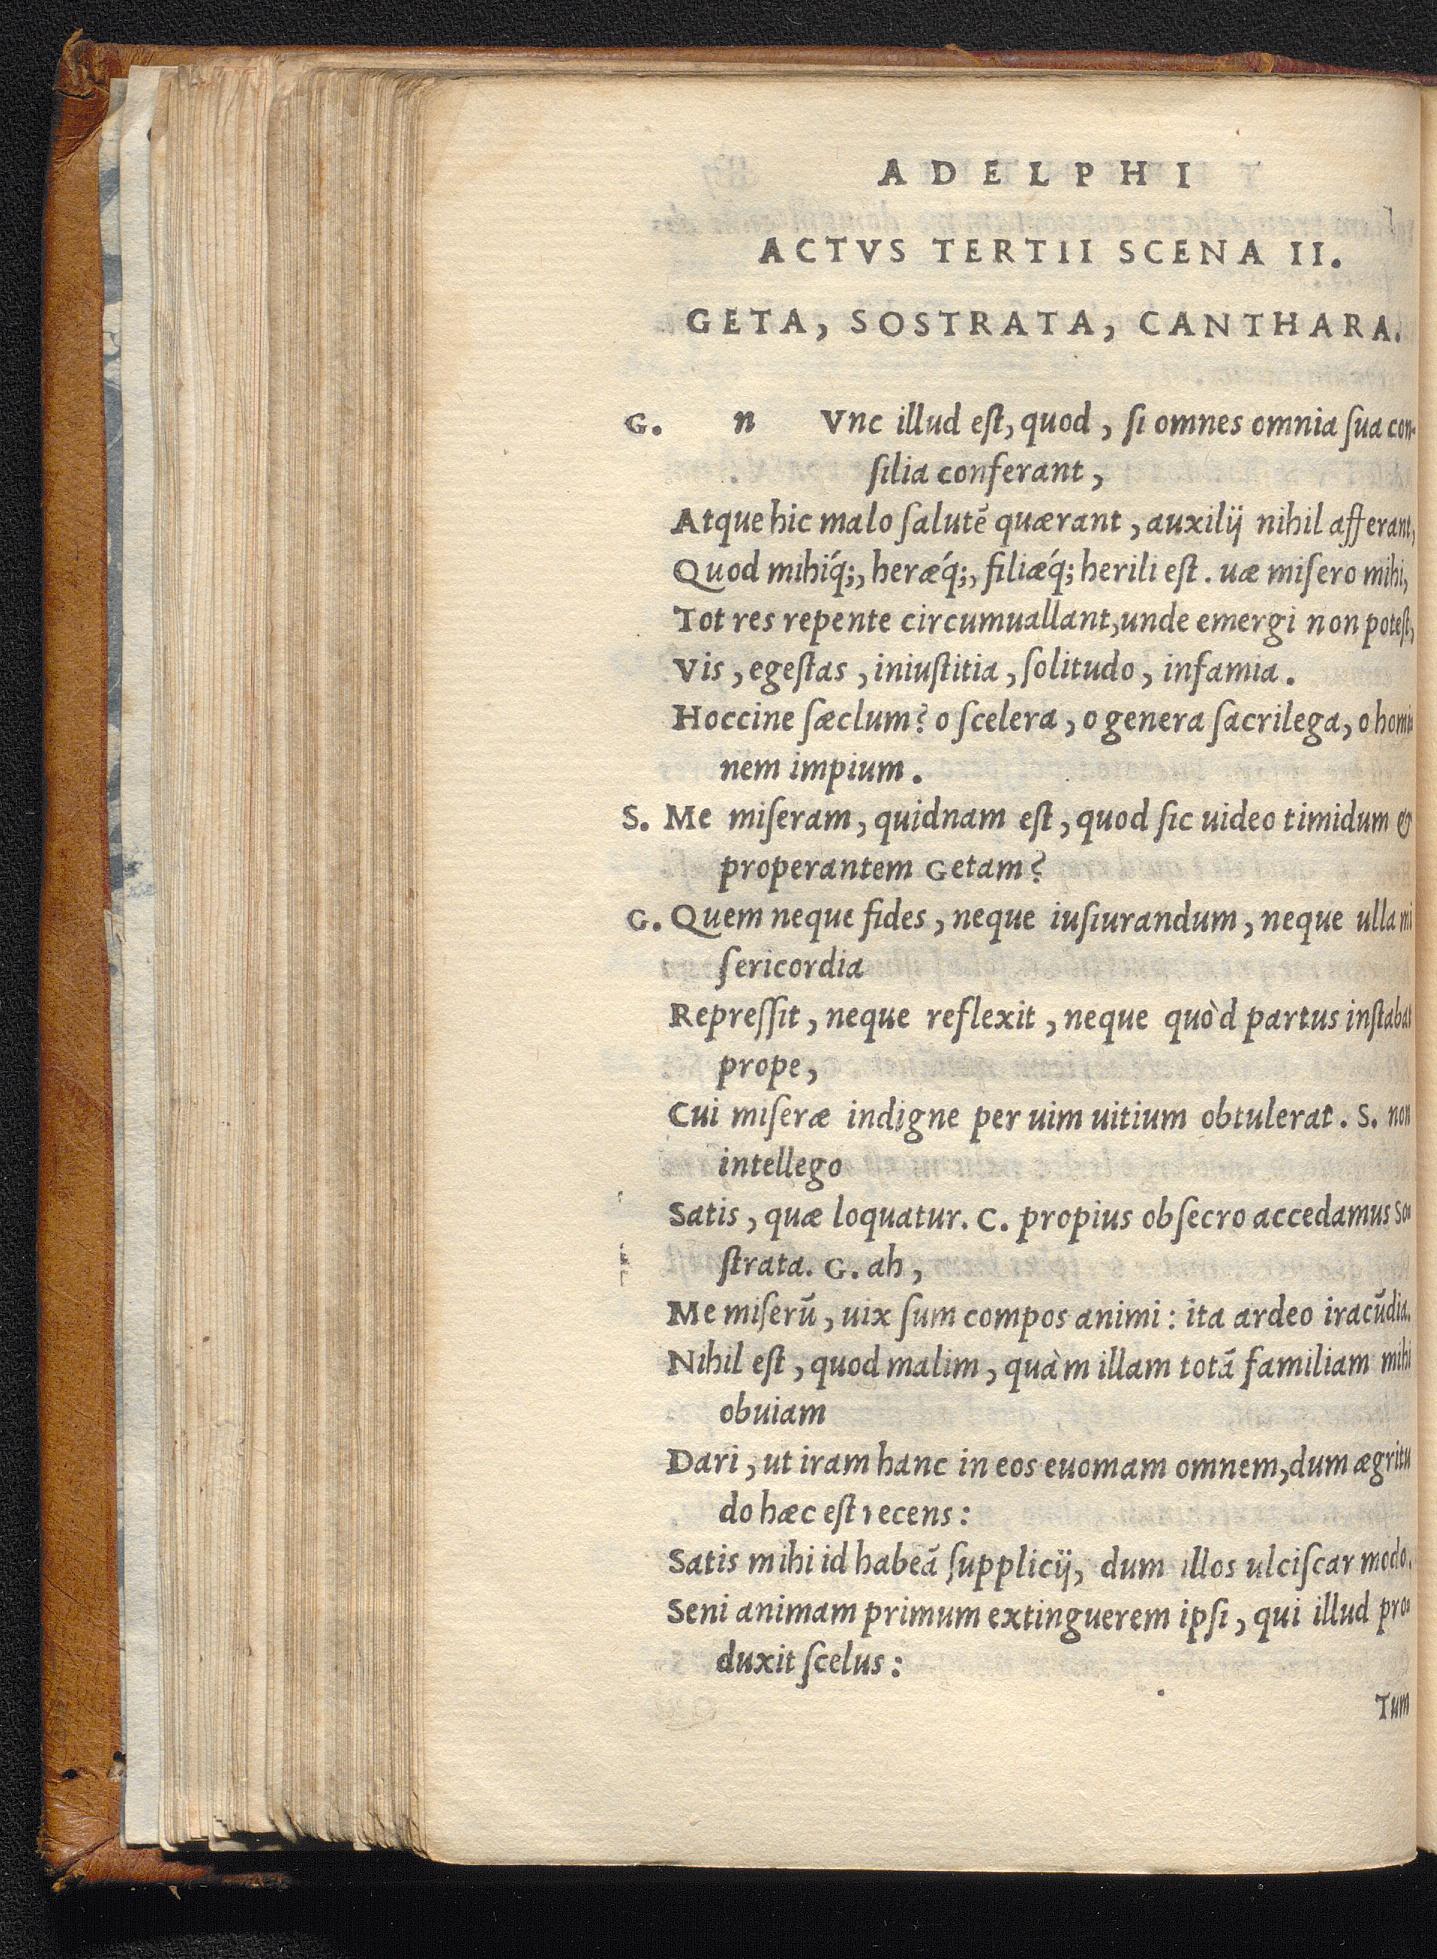 ADELPHI
ACTVS TERTII SCENA II.
GETA, SOSTRATA, CANTHARA.
G. n Vnc illud eſt, quod, ſi omnes omnia ſua con-
ſilia conferant,
Atque hic malo ſalutē quærant, auxilij nihil afferant,
Quod mihiq́;, heræq́;, filiæq́; herili eſt. uæ miſero mihi,
Tot res repente circumuallant, unde emergi non poteſt,
Vis, egeſtas, iniuſtitia, ſolitudo, infamia.
Hoccine ſæclum? o ſcelera, o genera ſacrilega, o homi
nem impium.
S. Me miſeram, quidnam eſt, quod ſic uideo timidum &
properantem Getam?
G. Quem neque fides, neque iuſiurandum, neque ulla mi
ſericordia
Repreſſit, neque reflexit, neque quòd partus inſtabat
prope,
Cui miſeræ indigne per uim uitium obtulerat. S. non
intellego
Satis, quæ loquatur. C. propius obſecro accedamus So-
ſtrata. G. ah,
Me miſerū, uix ſum compos animi: ita ardeo iracūdia.
Nihil eſt, quod malim, quàm illam totā familiam mihi
obuiam
Dari, ut iram hanc in eos euomam omnem, dum ægritu
do hæc eſt recens:
Satis mihi id habeā ſupplicij, dum illos ulciſcar modo.
Seni animam primum extinguerem ipſi, qui illud pro-
duxit ſcelus:
Tum